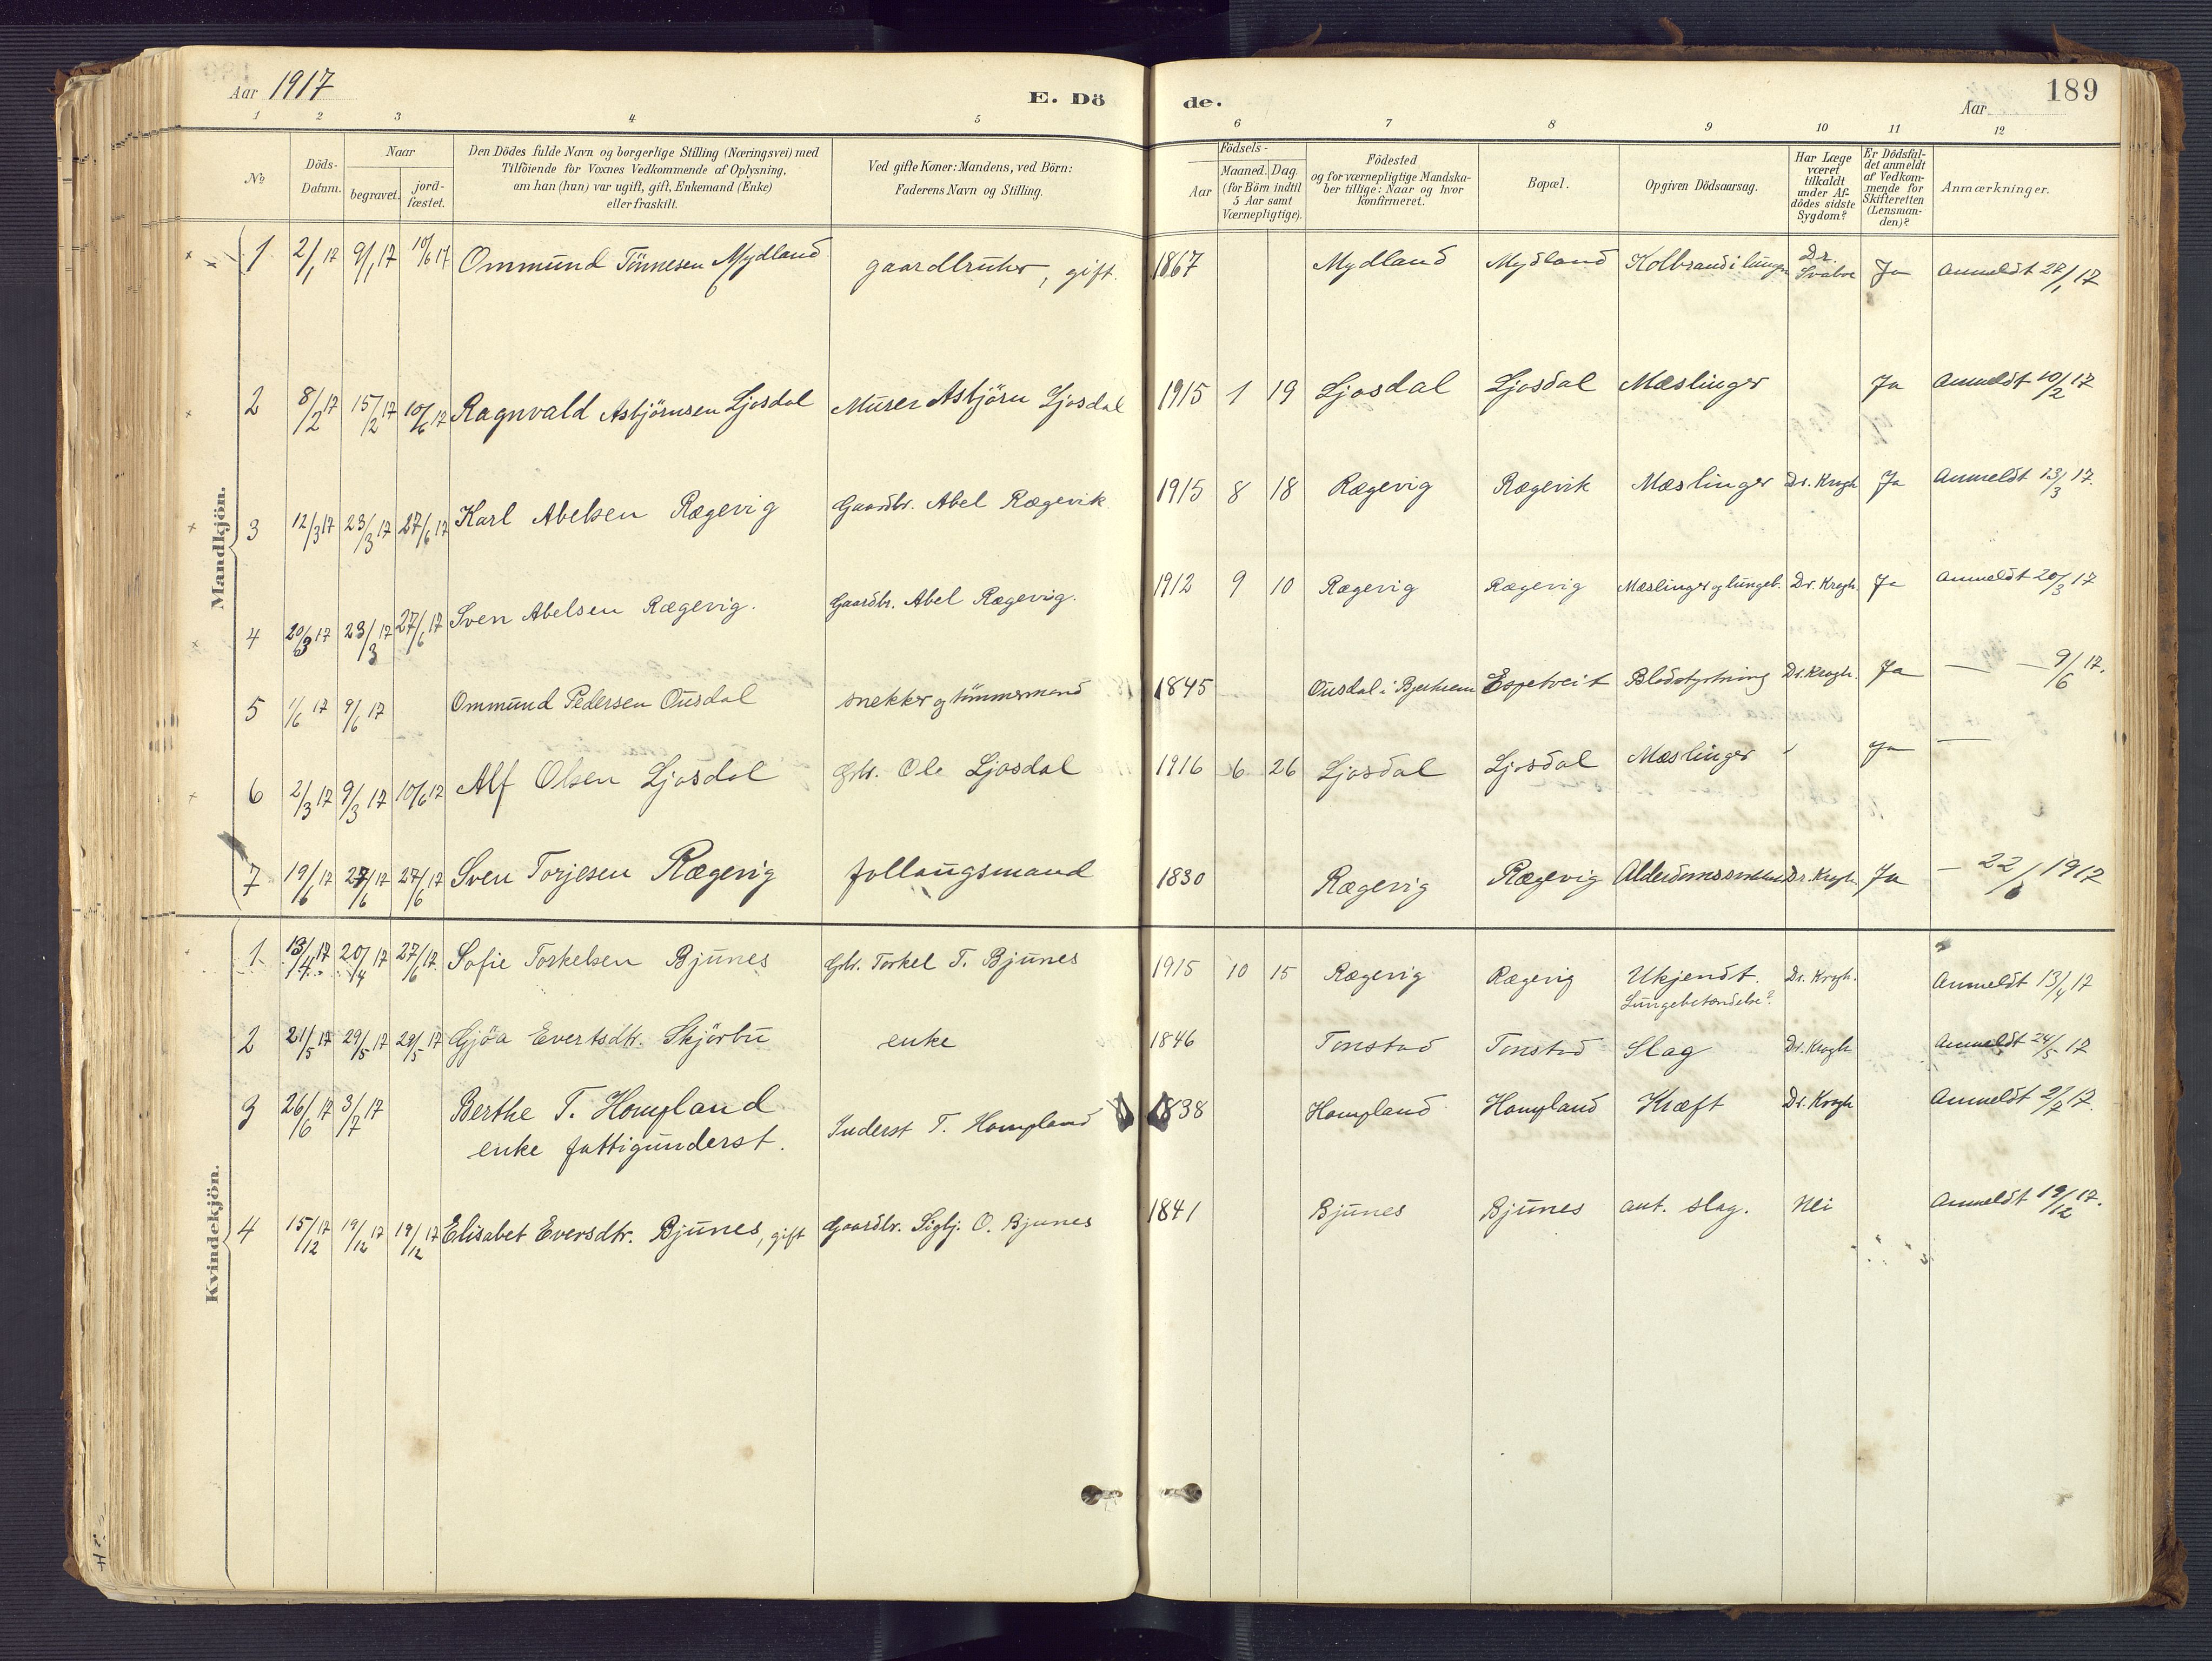 Aar 1917
E. Dö de.
Aar
189
1 2 3 4 5 6 7 8 9 10 11 12
No
Döds-Datum.
Naar
begravet.
jord-fæstet.
Den Dödes fulde Navn og borgerlige Stilling (Næringsvei) med
Tilföiende for Voxnes Vedkommende af Oplysning,
om han (hun) var ugift, gift, Enkemand (Enke)
eller fraskilt.
Ved gifte Koner: Mandens, ved Börn:
Faderens Navn og Stilling.
Födsels-
Aar
Maaned. Dag.
(for Börn indtil
5 Aar samt
Værnepligtige).
Födested
og for værnepligtige Mandska-
ber tillige: Naar og hvor
konfirmeret.
Bopæl.
Opgiven Dödsaarsag.
Har Læge
været
tilkaldt
under Af-
dödes sidste
Sygdom?
Er Dödsfal-
det anmeldt
af Vedkom-
mende for
Skifteretten
(Lensman-
den)?
Anmærkninger.
Mandkjön.
1 2/1 17 9/1 17 10/6 17 Ommund Tönnesen Mydland gaardbruker, gift. 1867 Mydland Mydland Kolbrand i lungen Dr. Svabre Ja Anmeldt 27/1 17
2 8/2 17 15/2 17 10/6 17 Ragnvald Asbjörnsen Ljosdal Murer Asbjörn Ljosdal 1915 1 19 Ljosdal Ljosdal Mæslinger Ja Anmeldt 10/2 17
3 12/3 17 23/3 17 27/6 17 Karl Abelsen Rægevig Gaardbr. Abel Rægevik 1915 8 18 Rægevig Rægevik Mæslinger Dr. Krogh Ja Anmeldt 13/3 17.
4 20/3 17 23/3 17 27/6 17 Sven Abelsen Rægevig. Gaardbr. Abel Rægevig. 1912 9 10 Rægevig Rægevig Mæslinger og lungeb. Dr. Krogh. Ja Anmeldt 20/3 17
5 1/6 17 9/6 17 Ommund Pedersen Ousdal snekker og tömmermand 1845 Ousdal i Bjerkreim Espetveit Blodstyrtning Dr. Krogh. Ja — — 9/6 17.
6 2/3 17 9/3 17 10/6 17 Alf Olsen Ljosdal Gbr. Ole Ljosdal 1916 6 26 Ljosdal Ljosdal Mæslinger Ja —
7 19/6 17 27/6 17 27/6 17 Sven Torjesen Rægevig follaugsmand 1830 Rægevig Rægevig Dr. Krogh Ja — 22/6 1917
Kvindekjön.
1 13/4 17 20/4 17 27/6 17. Sofie Torkelsen Bjunes Gbr. Torkel T. Bjunes 1915 10 15 Rægevig Rægevig Ukjendt. Lungebetændelse? Dr. Krogh. Anmeldt 13/4 17
2 21/5 17 29/5 17 29/5 17 Gjöa Evertsdtr. Skjörbu enke 1846 Tonstad Tonstad Slag Dr. Krogh Anmeldt 24/5 17
3 26/6 17 3/7 17 Berthe T. Hompland
enke fattigunderst. Inderst T. Hompland 1838 Hompland Hompland Kræft Dr. Krogh Anmeldt 2/7 17.
4 15/12 17 19/12 17 19/12 17 Elisabet Eversdtr. Bjunes, gift Gaardbr. Sigbj. O. Bjunes 1841 Bjunes Bjunes ant. slag. Nei Anmeldt 19/12 17.